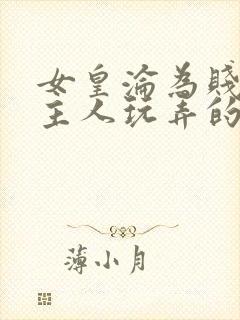 女皇淪為賤
主人玩弄的
薄小月